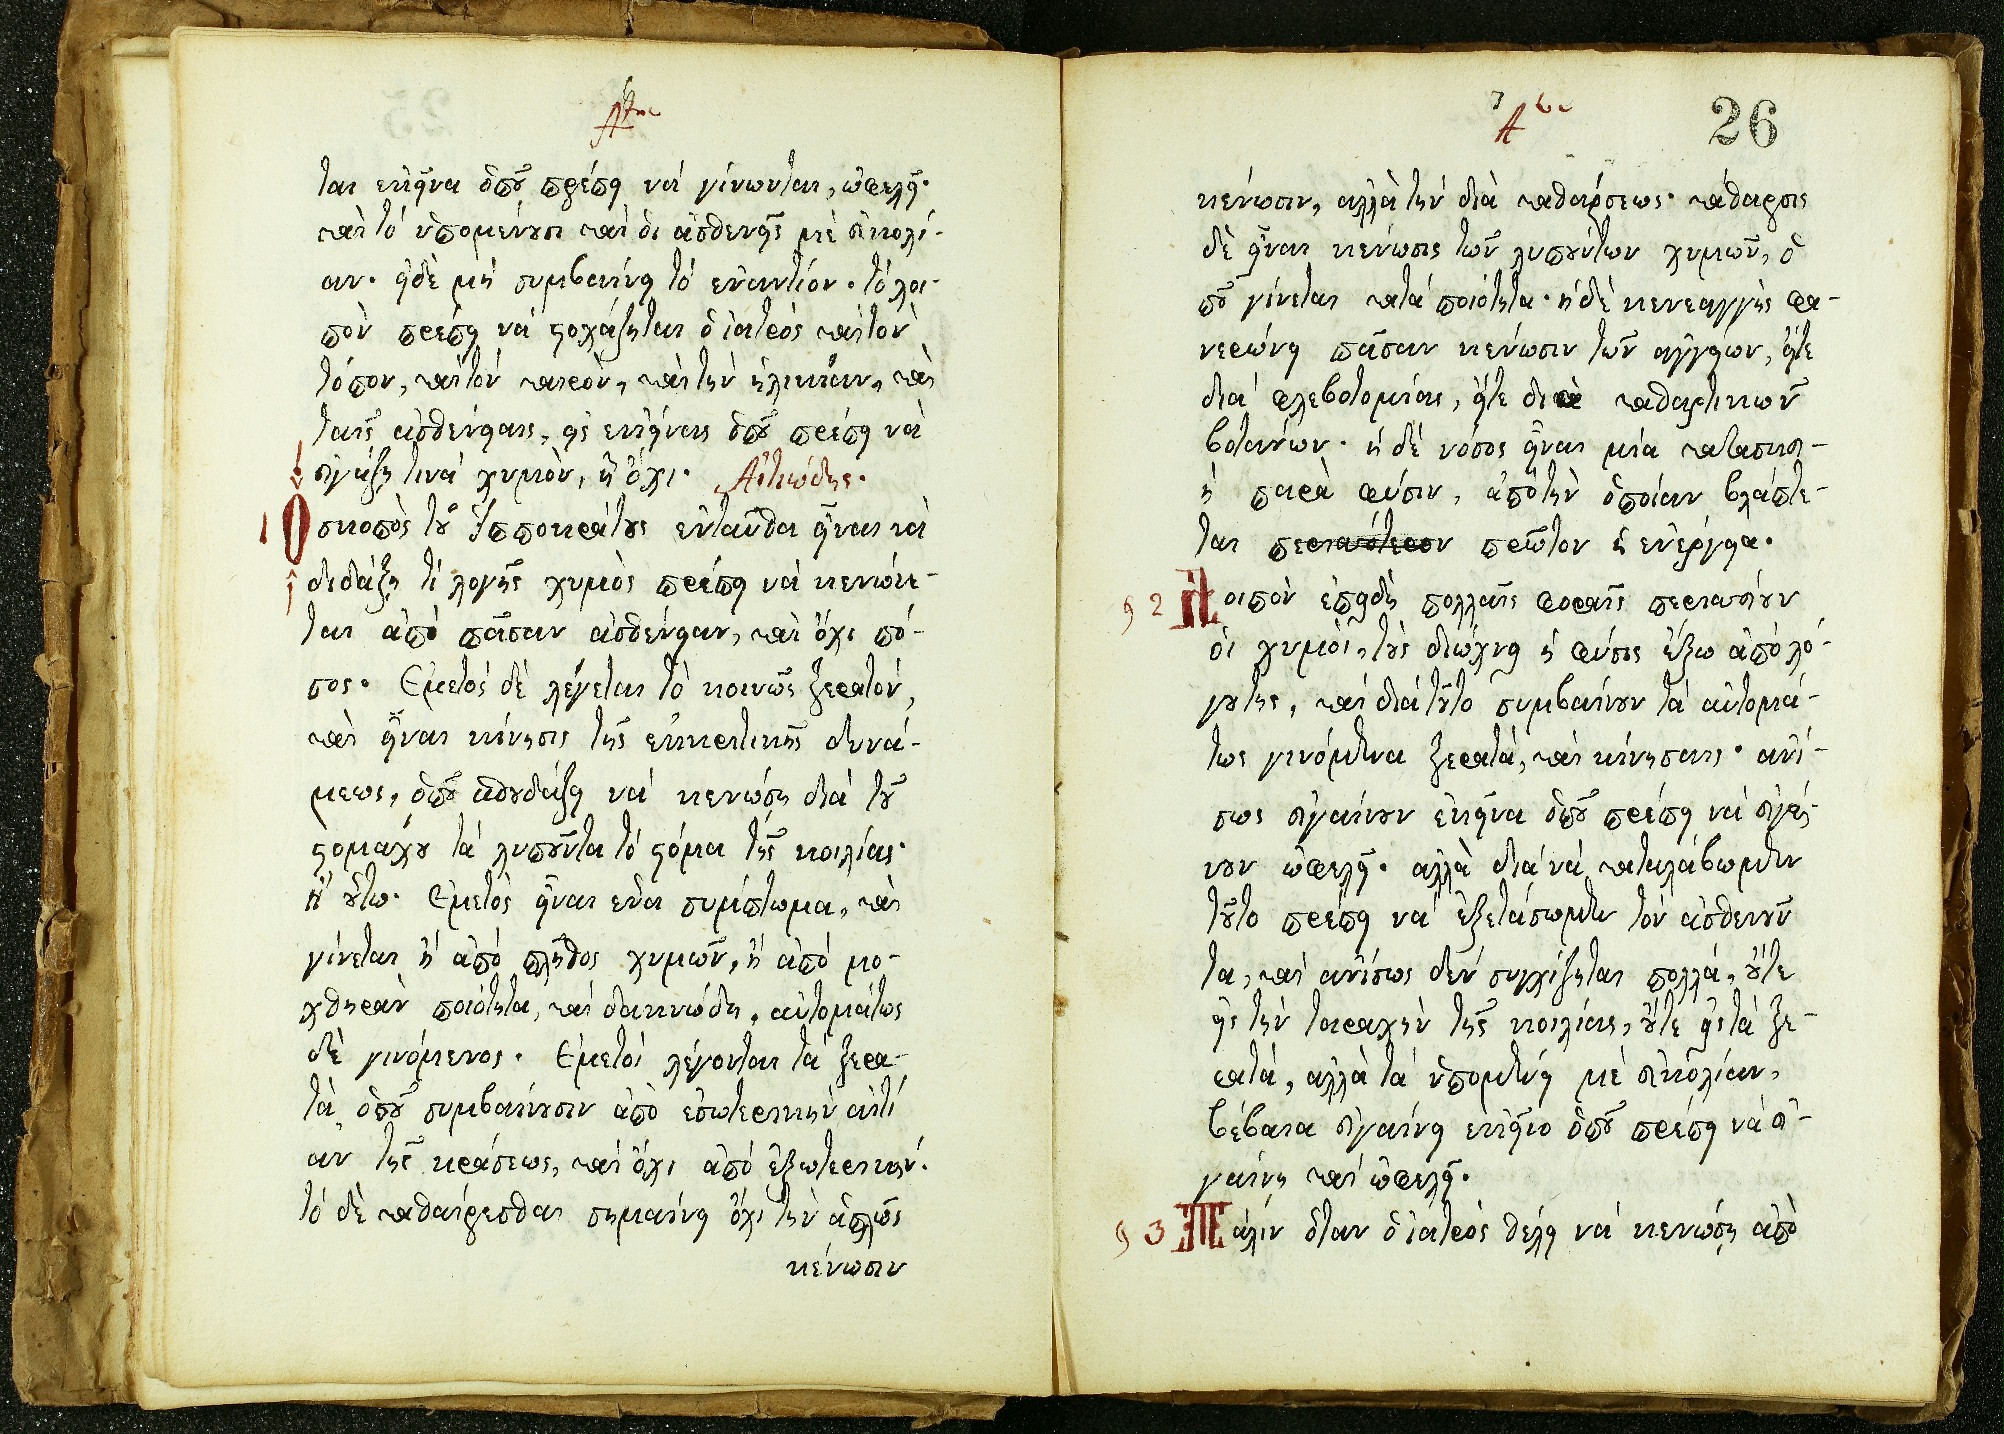 ται ἐκεῖνα ὁποῦ πρέπει νὰ γίνωνται, ὠφελεῖ·
καὶ τὸ ὑπομένουσι καὶ οἱ ἀσθενεῖς μὲ εὐκολί-
αν· εἰδὲ μὴ συμβαίνει τὸ ἐναντίον. τὸ λοι-
πὸν πρέπει νὰ στοχάζεται ὁ ἰατρὸς καὶ τὸν
τόπον, καὶ τὸν καιρὸν, καὶ τὴν ἡλικίαν, καὶ
ταῖς ἀσθένειαις, εἰς ἐκείναις ὁποῦ πρέπει νὰ
εὐγάζῃ τινὰ χυμὸν, ἢ ὄχι. Αἰτιώδης.
1 Ὁ σκοπὸς τοῦ Ἱπποκράτους ἐνταῦθα εἶναι νὰ
διδάξῃ τί λογῆς χυμὸς πρέπει νὰ κενώνε-
ται ἀπὸ πᾶσαν ἀσθένειαν, καὶ ὄχι πό-
σος. Ἐμετός δὲ λέγεται τὸ κοινῶς ξερατόν,
καὶ εἶναι κίνησις τῆς ἐκκριτικῆς δυνά-
μεως, ὁποῦ σπουδάζει νὰ κενώσῃ διὰ τοῦ
στομάχου τὰ λυποῦντα τὸ στόμα τῆς κοιλίας·
ἢ οὕτω. Ἐμετὸς εἶναι ἕνα σύμπτωμα, καὶ
γίνεται ἢ ἀπὸ πλῆθος χυμῶν, ἢ ἀπὸ μο-
χθηρὰν ποιότητα, καὶ δακνώδη, αὐτομάτως
δὲ γινόμενος. Ἐμετοί λέγονται τὰ ξερα-
τὰ ὁποῦ συμβαίνουσιν ἀπὸ ἐσωτερικὴν αἰτί
αν τῆς κράσεως, καὶ ὄχι ἀπὸ ἐξωτερικήν.
τὸ δὲ καθαίρεσθαι σημαίνει ὄχι τὴν ἁπλῶς
κένωσιν
26
κένωσιν, ἀλλὰ τὴν διὰ καθάρσεως· κάθαρσις
δὲ εἶναι κένωσις τῶν λυπούντων χυμῶν, ὁ
ποῦ γίνεται κατὰ ποιότητα· ἡ δὲ κενεαγγὴς φα-
νερώνει πᾶσαν κένωσιν τῶν ἀγγείων, εἴτε
διὰ φλεβοτομίας, εἴτε διὰ καθαρτικῶν
βοτάνων. ἡ δὲ νόσος εἶναι μία κατασκευ-
ὴ παρὰ φύσιν, ἀπὸ τὴν ὁποίαν βλάπτε-
ται περισσότερον πρῶτον ἡ ἐνέργεια.
§ 2 Λοιπὸν ἐπειδὴ πολλαῖς φοραῖς περισσεύουν
οἱ χυμοὶ, τοὺς διώχνει ἡ φύσις ἔξω ἀπὸ λό-
γου της, καὶ διὰ τοῦτο συμβαίνουν τὰ αὐτομά-
τως γινόμενα ξερατὰ, καὶ κίνησαις· ἀνί-
σως εὐγαίνουν ἐκεῖνα ὁποῦ πρέπει νὰ εὐγαί-
νουν ὠφελεῖ. ἀλλὰ διὰ νὰ καταλάβωμεν
τοῦτο πρέπει νὰ ἐξετάσωμεν τὸν ἀσθενοῦν
τα, καὶ ἀνίσως δὲν συγχίζεται πολλά, οὔτε
εἰς τὴν ταραχὴν τῆς κοιλίας, οὔτε εἰς τὰ ξε-
ρατά, ἀλλὰ τὰ ὑπομένει μὲ εὐκολίαν,
βέβαια εὐγαίνει ἐκεῖνο ὁποῦ πρέπει νὰ εὐ-
γαίνῃ καὶ ὠφελεῖ.
§ 3 Πάλιν ὅταν ὁ ἰατρὸς θέλῃ νὰ κενώσῃ ἀπὸ